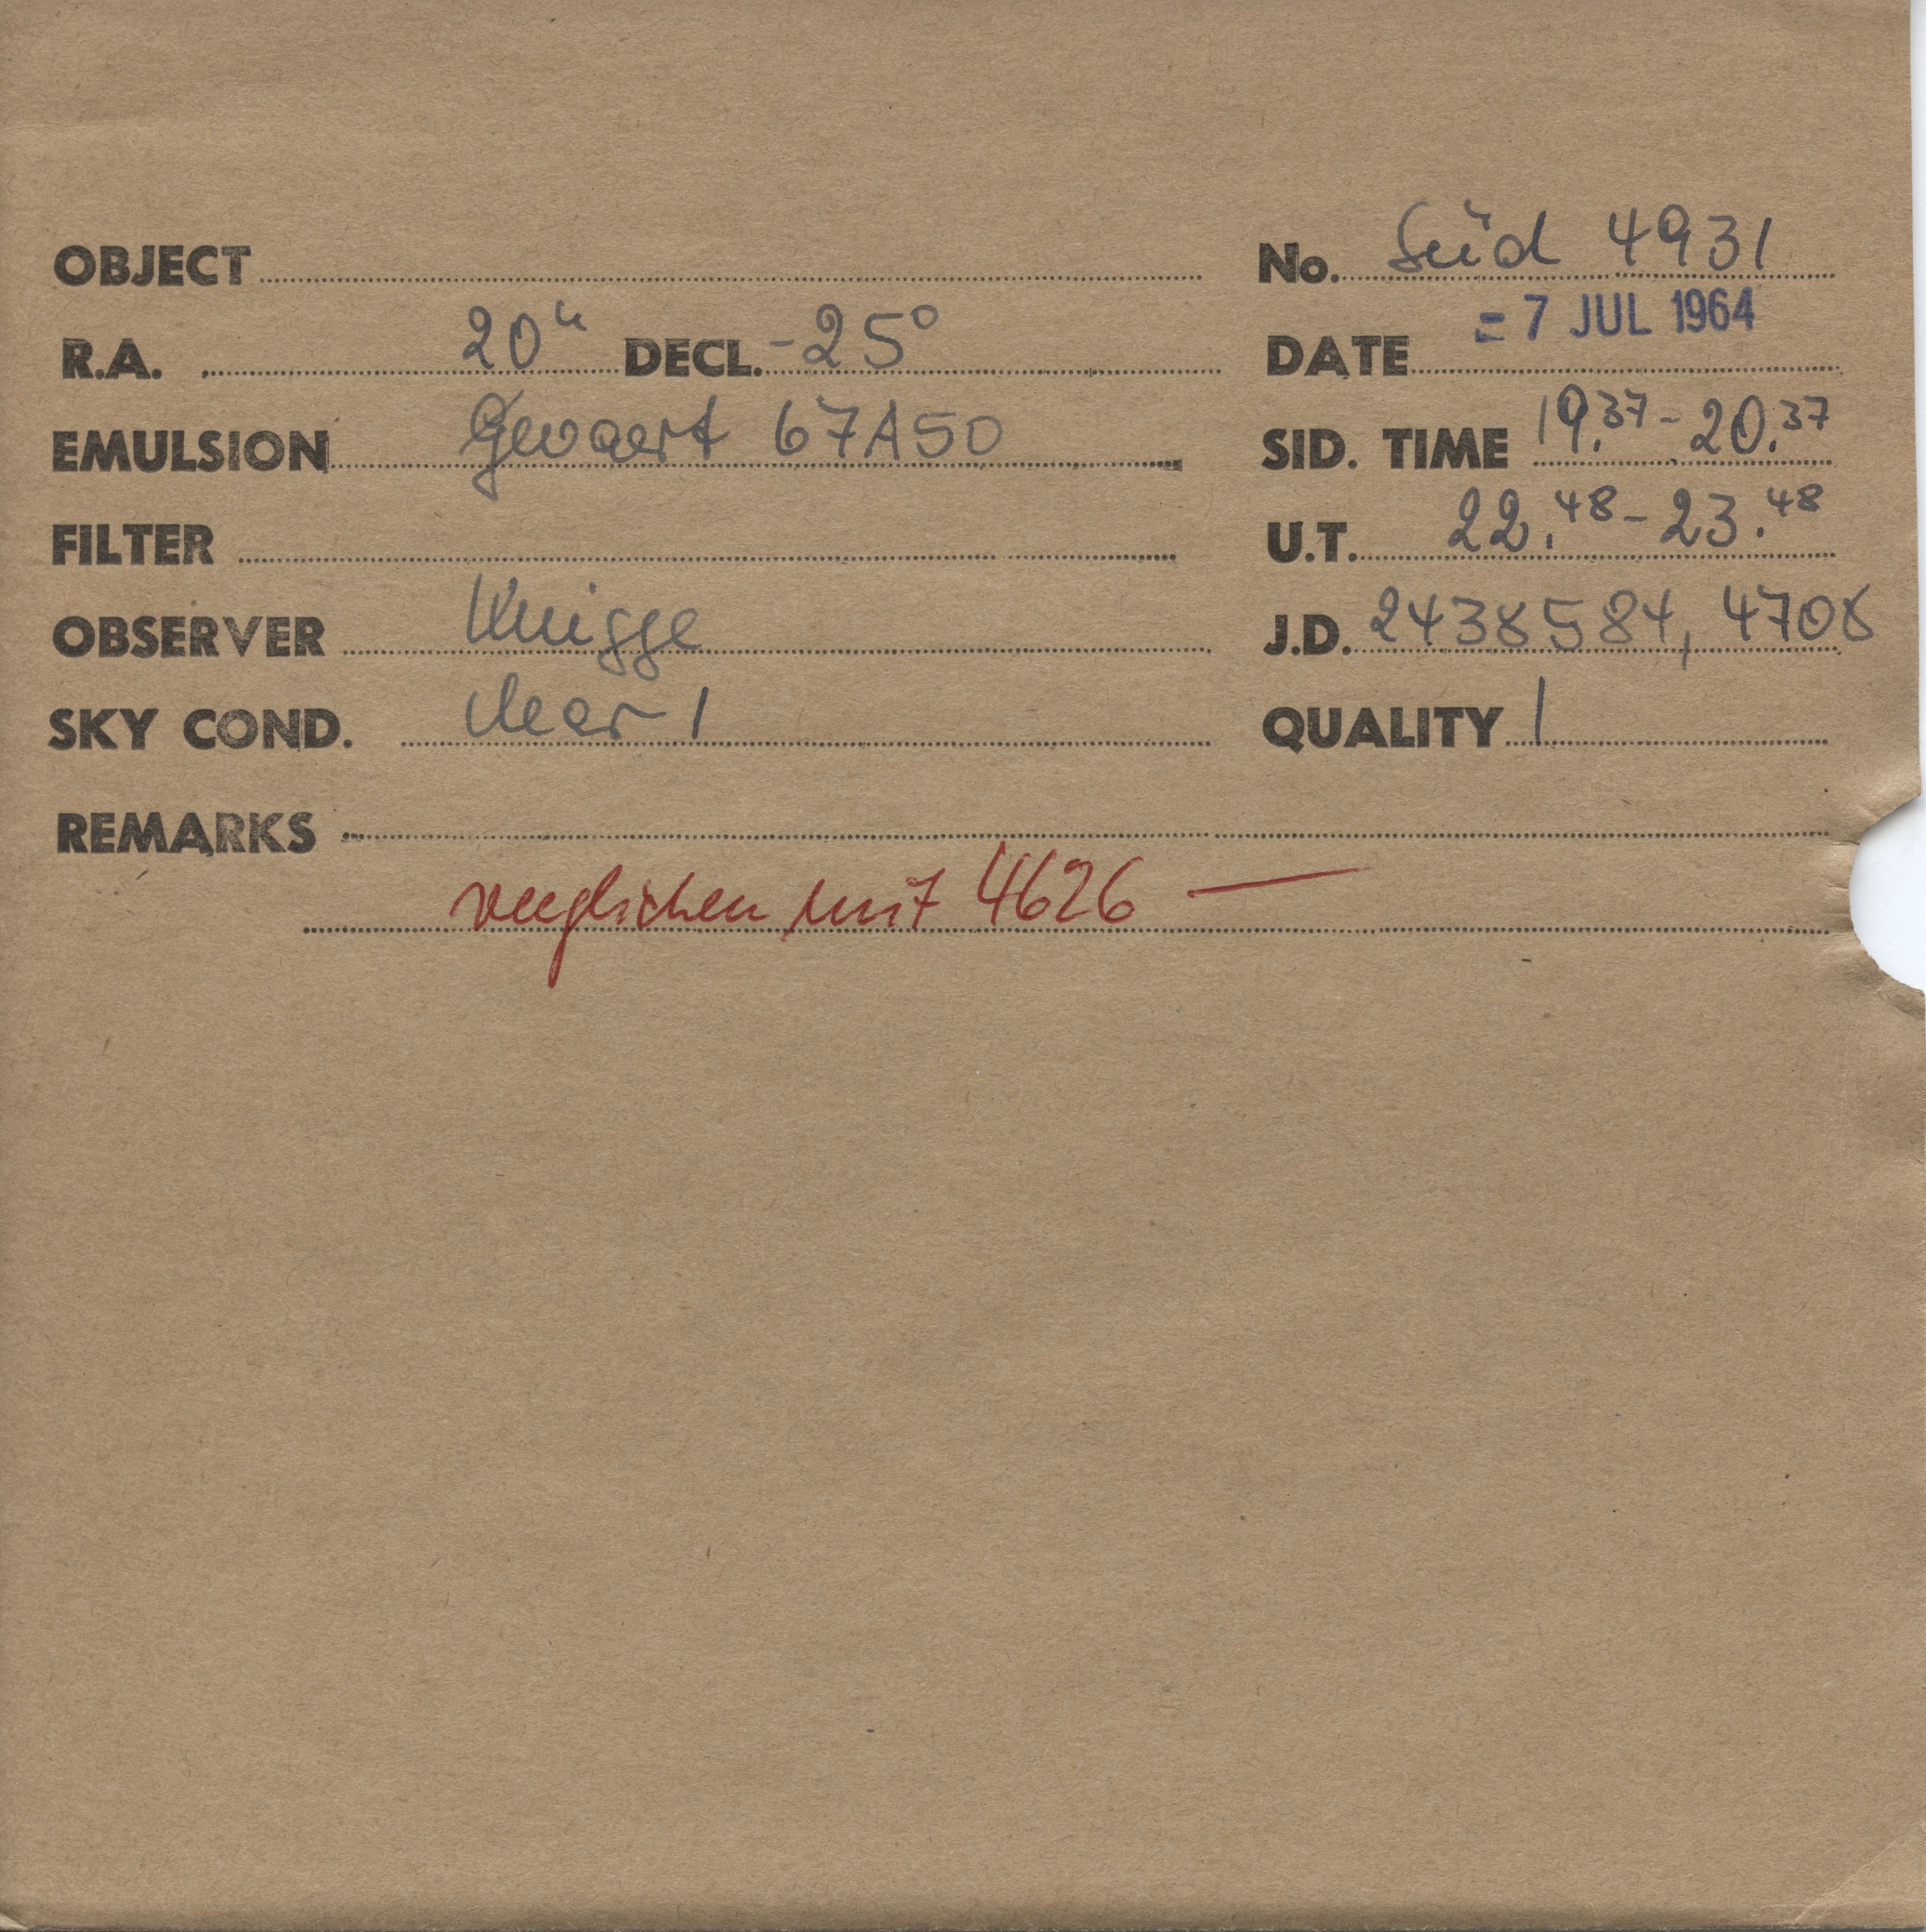 OBJECT
No. Süd 4931
R.A. 20h DECL. -25°
DATE = 7 JUL 1964
EMULSION Gevaert 67A50
SID. TIME 19.37 - 20.37
FILTER
U.T. 22.48 - 23.48
OBSERVER Knigge
J.D. 2438584,4708
SKY COND. clear 1
QUALITY 1
REMARKS
verglichen mit 4626 —